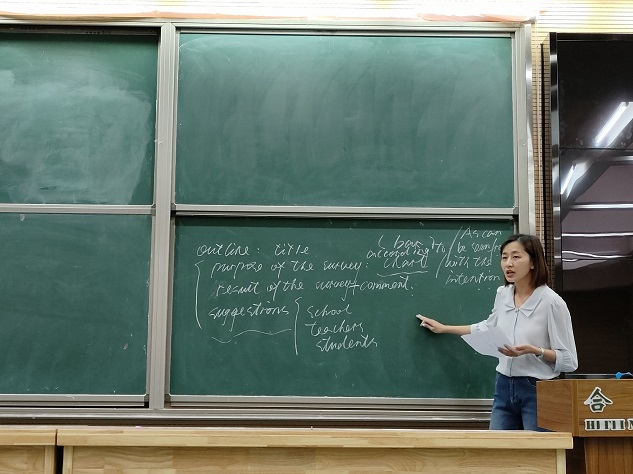 outline: title
purpose of the survey:
result of the survey + comment.
suggestions
school
teachers
students
( bar
according to
chart
/ As can
be seen from
/ with the
intention
合
HEFEI N